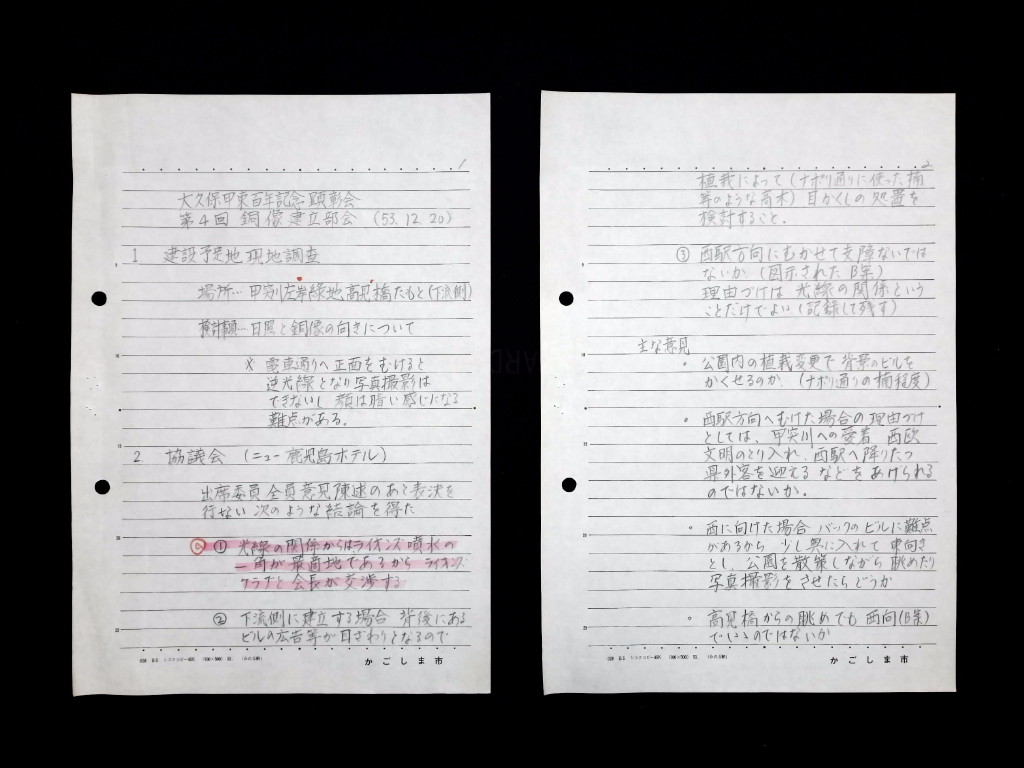 1
大久保甲東百年記念顕彰会
第4回 銅像建立部会 (53.12.20)
1 建設予定地現地調査
場所…甲突川左岸緑地高見橋たもと(下流側)
検討課題…日照と銅像の向きについて
※ 電車通りへ正面をむけると
逆光線となり写真撮影は
できないし 顔は暗い感じになる
難点がある。
2 協議会 (ニュー鹿児島ホテル)
出席委員全員意見陳述のあと表決を
行ない 次のような結論を得た
① 光線の関係からはライオンズ噴水の
一角が最適地であるから ライオンズ
クラブと会長が交渉する
② 下流側に建立する場合 背後にある
ビルの広告等が目ざわりとなるので
かごしま市
2
植栽によって(ナポリ通りに使った楠
等のような高木)目かくしの処置を
検討すること。
③ 西駅方向にむかせて支障ないでは
ないか (図示されたB案)
理由づけは 光線の関係という
ことだけでよい(記録して残す)
主な意見
・ 公園内の植栽変更で 背景のビルを
かくせるのか (ナポリ通りの楠程度)
・ 西駅方向へむけた場合の理由づけ
としては、甲突川への愛着 西欧
文明のとり入れ、西駅へ降りたつ
県外客を迎える などをあげられる
のではないか。
・ 西に向けた場合 バックのビルに難点
があるから 少し奥に入れて 東向き
とし、公園を散策しながら 眺めたり
写真撮影をさせたらどうか
・ 高見橋からの眺めでも 西向(B案)
でいいのではないか
かごしま市